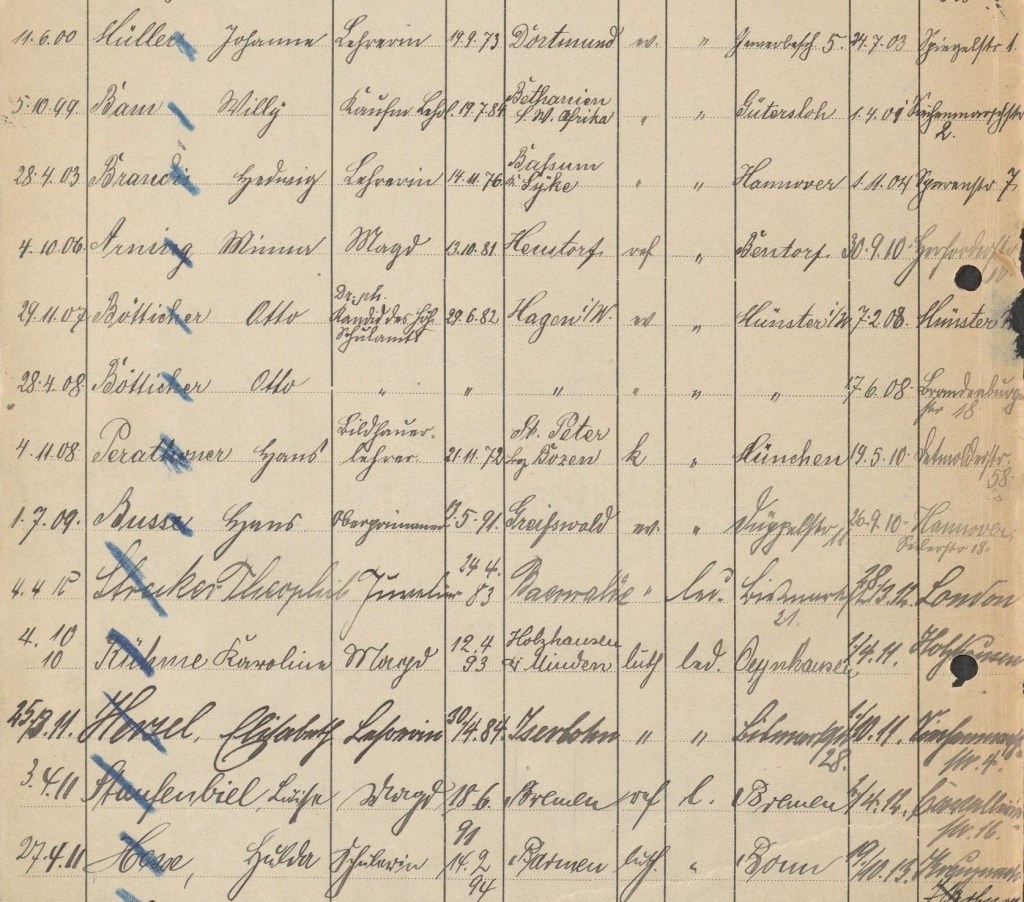 11.6.00 Müller Johanne Lehrerin 19.9.73 Dortmund ev. " Gewerbesch 5. 24.7.03 Spiegelstr 1.
5.10.99. Bam Willy Kaufm Lehrl. 19.7.84 Bethanien S. W. Afrika " " Gütersloh 1.4.01
2.
28.4.03 Brandis Hedwig Lehrerin 14.11.76 Bassum Syke " " Hannover 1.11.04 Sparenstr 7
4.10.06. Arning Minna Magd 13.10.81 ref " Bentorf. 30.9.10 Herforderstr
29.11.07 Bötticher Otto Dr. ph. Kandid des höh. Schulamts 29.6.82 Hagen i/W. ev " Münster i/W 7.2.08. Münster
28.4.08. Bötticher Otto " " " " " " 17.6.08. Brandenburger
str 18
4.11.08 Perathoner Hans Bildhauer-
lehrer. 21.11.72 St. Peter
bey Bozen k " München 19.5.10 Detmolderstr.
58.
1.7.09. Busse Hans Oberprimaner 5.91. Greifswald ev. " Düppelstr 26.9.10 Hannover,
18.
4.4 10 Theophil Juwelier 24 4.
83 Baerwalde " led. Bismarkstr
21. London
4. 10
10 Kühme Karoline Magd 12.4
93 Holzhausen
Minden luth led. Oeynhausen 1/4.11. Holzhausen
Herzel, Elisabeth Lehrerin 30/4.84. Iserlohn " " Bismarkstr
28. 10.11.
str. 4.
3.4.11 Staufenbiel, Luise Magd 18 6.
91 Bremen ref l. Bremen
str. 16.
27.4.11 Hesse, Hulda Schülerin 14.2
94 Barmen luth. " Bonn 19/10.13.